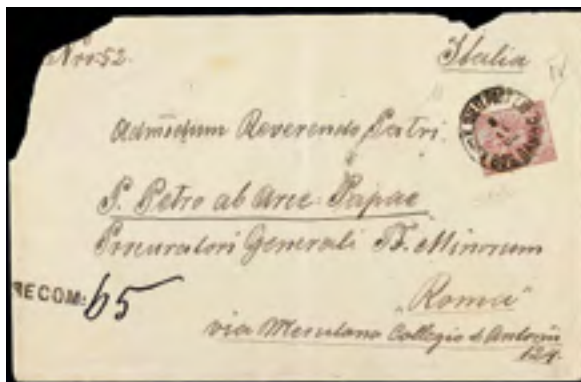 Nro 52.
Italia
Admodum Reverendo Patri
P. Petro ab Arce-Papae
Procuratori Generali FF. Minorum
RECOM: 65
"Roma"
via Merulana Collegio S. Antonii
124.